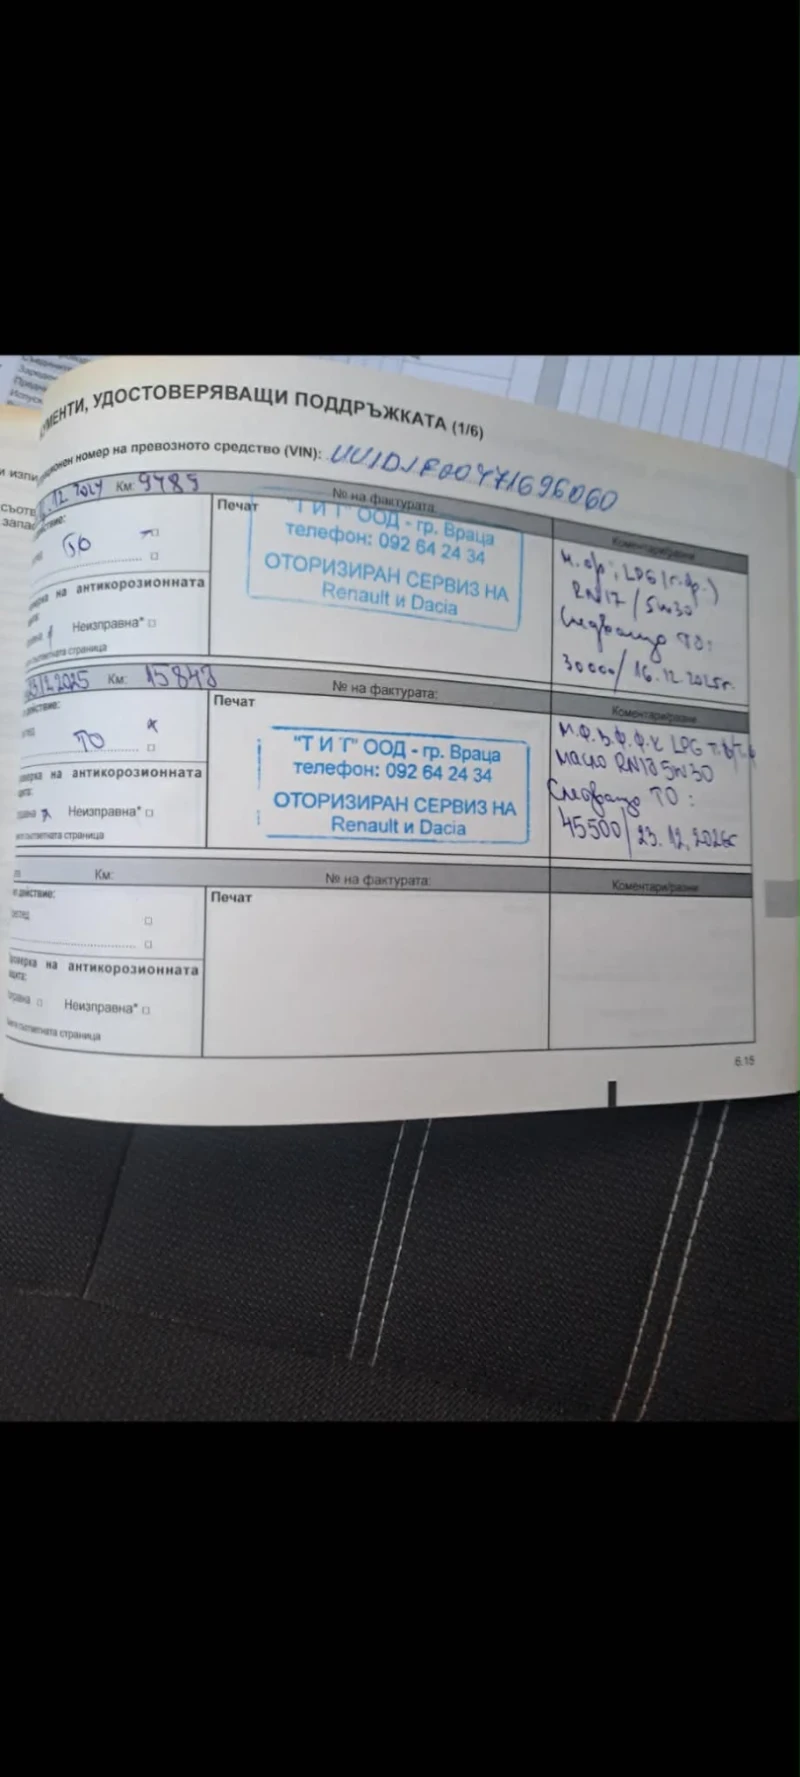 УДОСТОВЕРЯВАЩИ ПОДДРЪЖКАТА (1/6)
номер на превозното средство (VIN): UU1DJF00471696060
12 2024 Км: 9485 № на фактурата: Коментари/разни
Печат
"Т И Т" ООД - гр. Враца
телефон: 092 64 24 34
ОТОРИЗИРАН СЕРВИЗ НА
Renault и Dacia
ТО
на антикорозионната
Неизправна*
съответната страница
RN17 / 5w30
Следващо ТО:
30000/ 16.12.2025г.
23.12.2025 Км: 15843 № на фактурата: Коментари/разни
Печат
"Т И Т" ООД - гр. Враца
телефон: 092 64 24 34
ОТОРИЗИРАН СЕРВИЗ НА
Renault и Dacia
ТО
на антикорозионната
Неизправна*
съответната страница
масло 5w30
Следващо ТО:
45500/ 23.12.2026г
Км: № на фактурата: Коментари/разни
действие:
Печат
на антикорозионната
Неизправна*
съответната страница
6.15